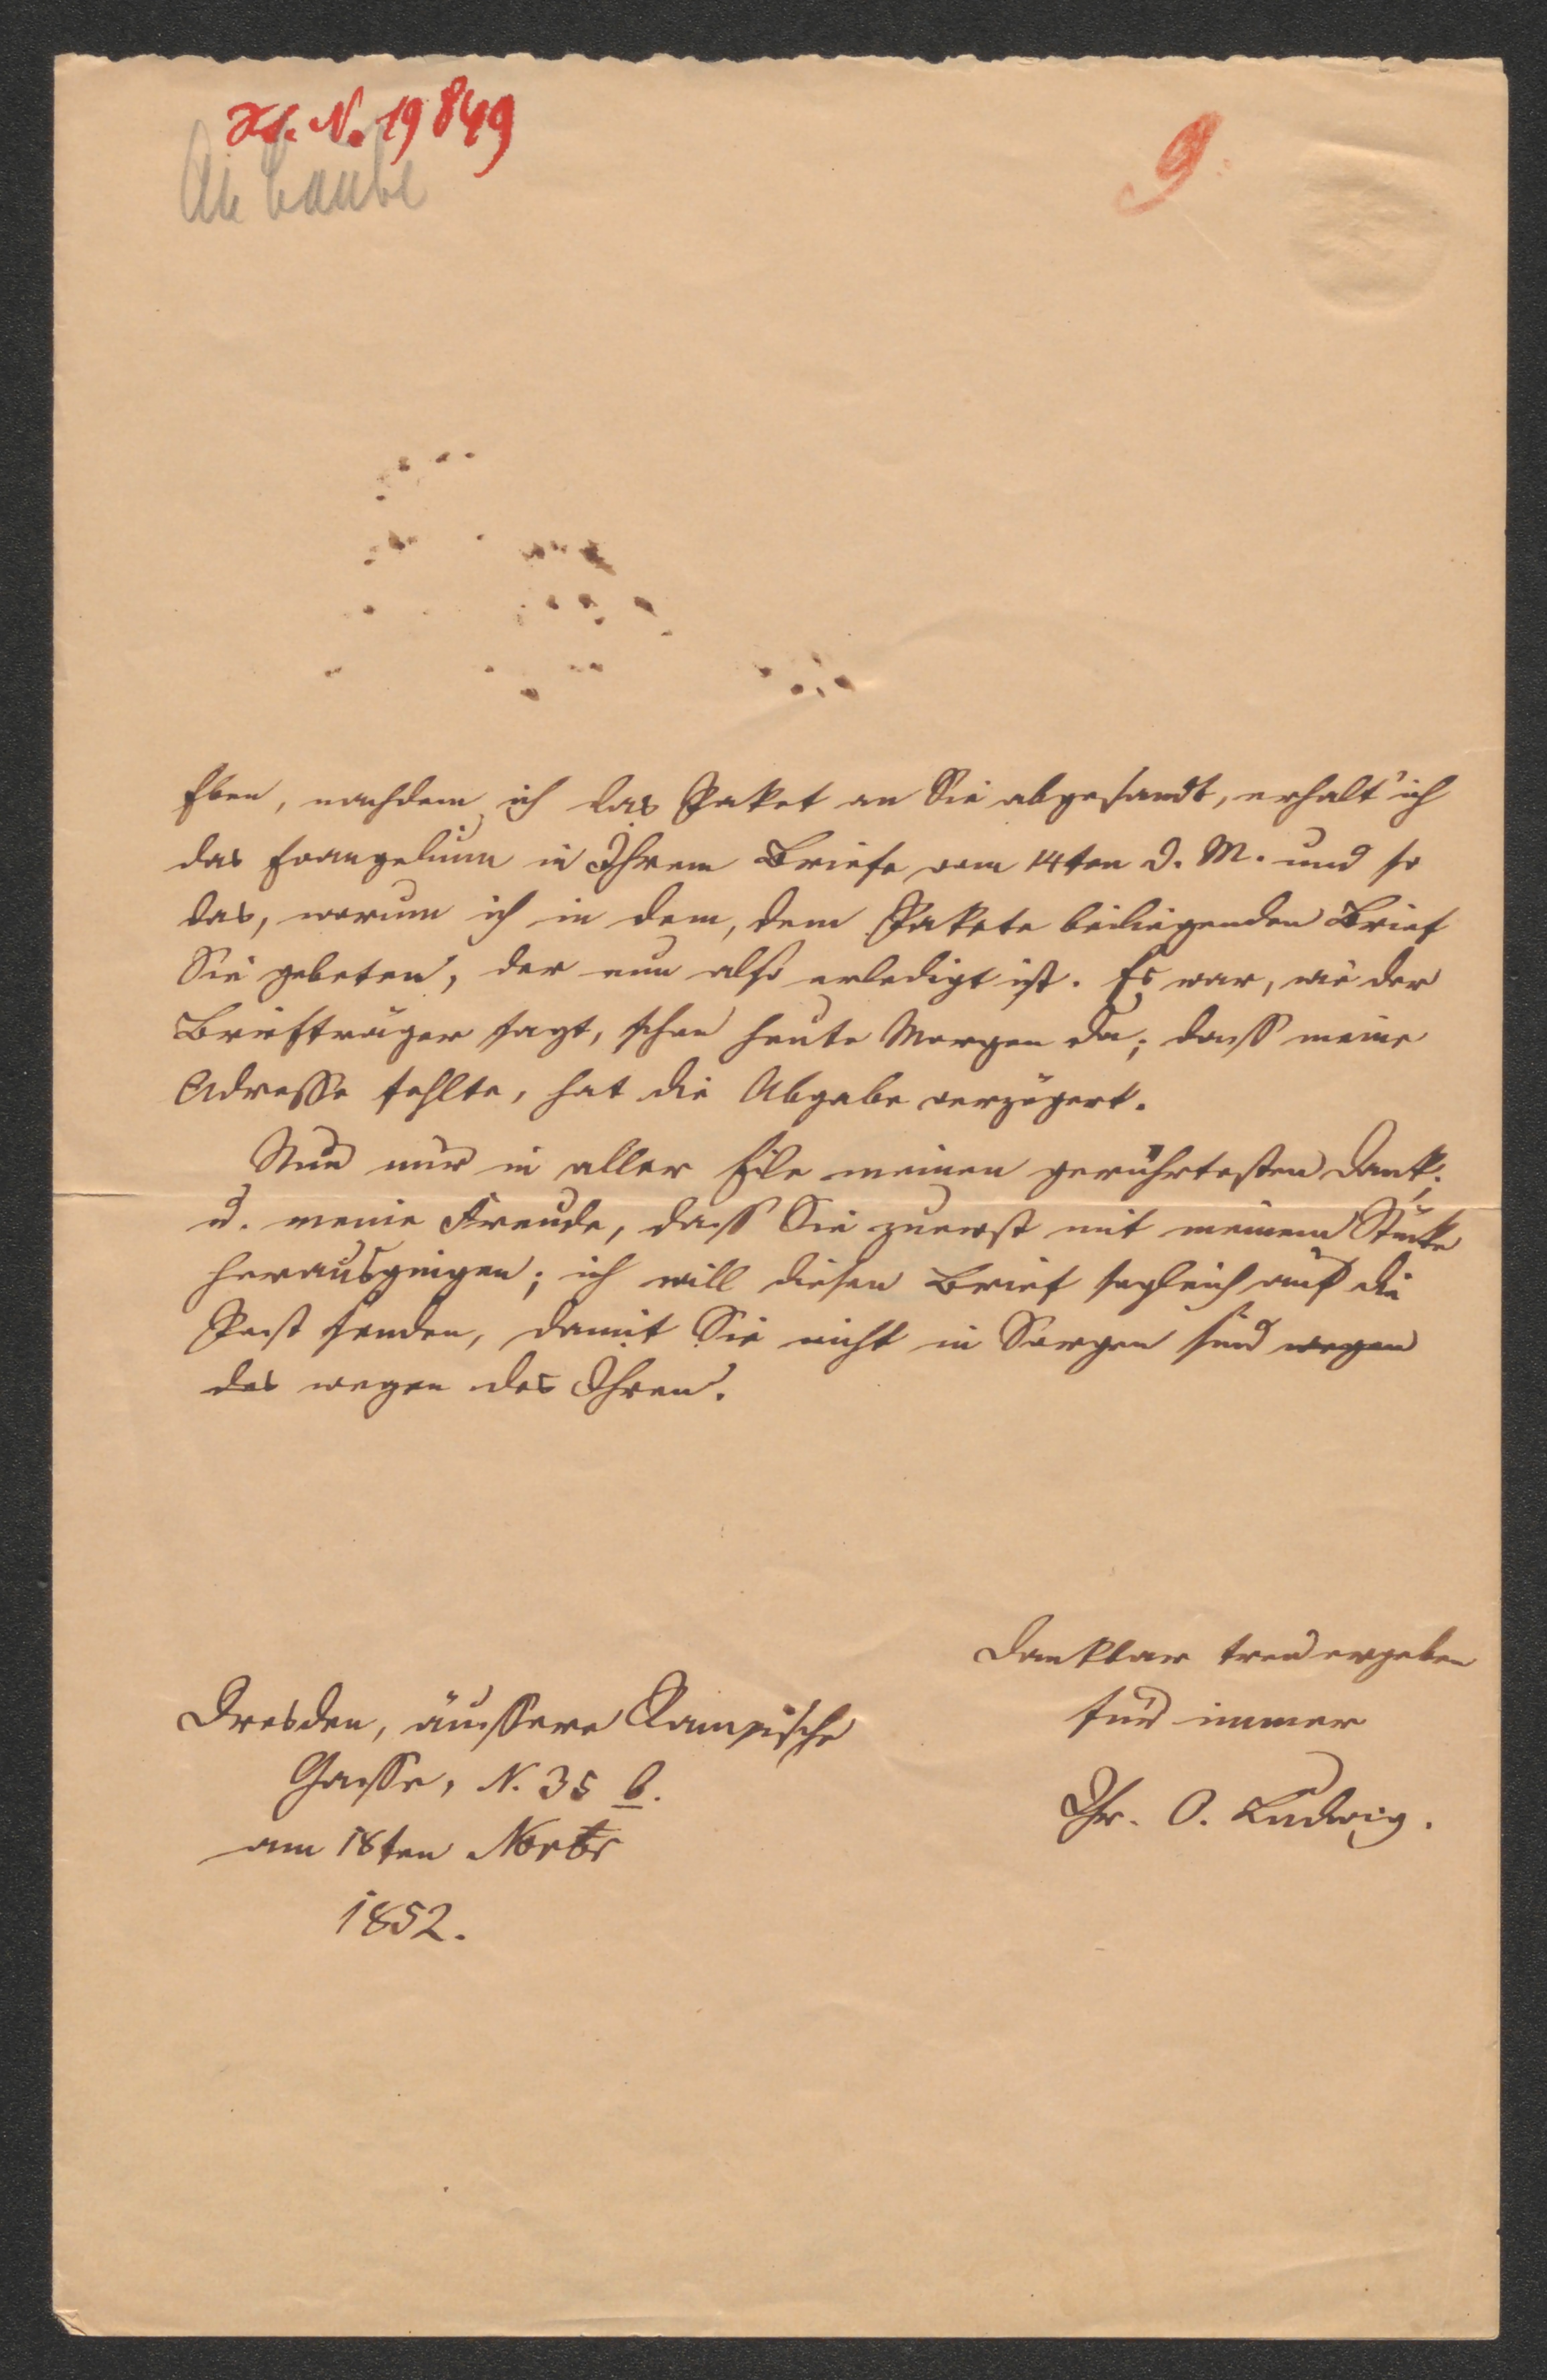 H. N. 19849
An Laube
9.
Eben, nachdem ich das Paket an Sie abgesandt, erhalt' ich
das Evangelium in Ihrem Briefe vom 14ten d. M. und so
das, warum ich in dem, dem Pakete beiliegenden Brief
Sie gebeten, der nun also erledigt ist. Es war, wie der
Briefträger sagt, schon heute Morgen da; dass meine
Adresse fehlte, hat die Abgabe verzögert.
Nun nur in aller Eile meinen gerührtesten Dank;
u. meine Freude, dass Sie zuerst mit meinem Stücke
herausgingen; ich will diesen Brief sogleich auf die
Post senden, damit Sie nicht in Sorgen sind wegen
des wegen des Ihren.
Dankbar treu ergeben
für immer
Ihr. O. Ludwig.
Dresden, äussere Rampische
Gasse, N. 35 b.
am 18ten Novbr
1852.